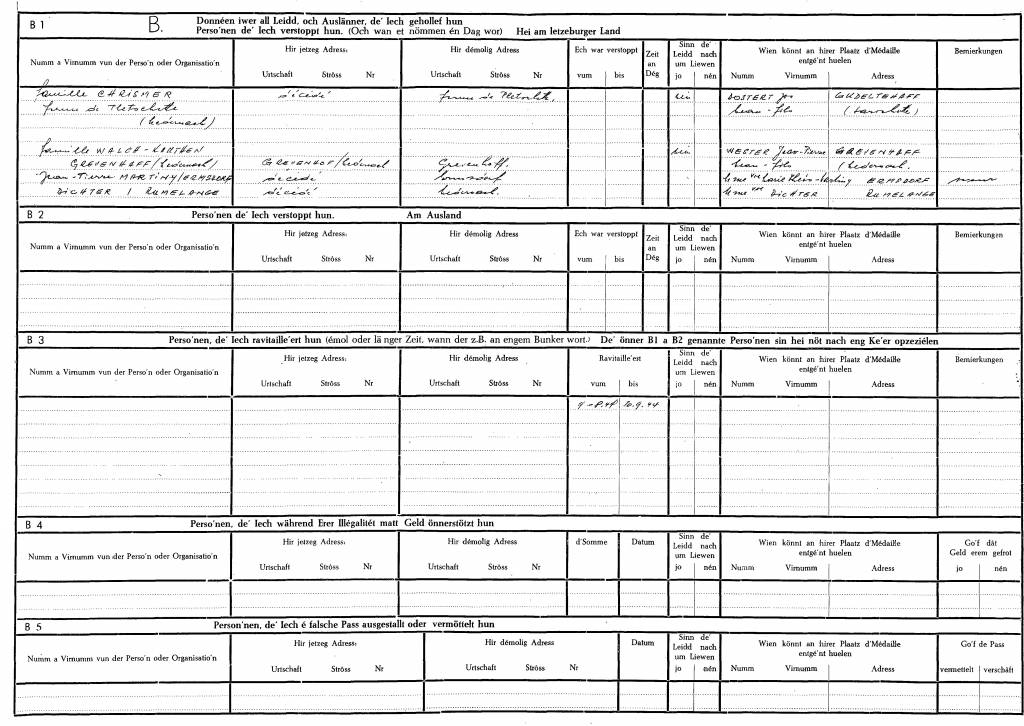 B 1 B. Donnéen iwer all Leidd, och Auslänner, de´ Iech gehollef hun
Perso'nen de´ Iech verstoppt hun. (Och wan et nömmen én Dag wor) Hei am letzeburger Land
Numm a Virnumm vun der Perso'n oder Organisatio'n Hir jetzeg Adress: Hir démolig Adress Ech war verstoppt Zeit an Dég Sinn de´ Leidd nach um Liewen Wien könnt an hirer Plaatz d'Médaille entgé'nt huelen Bemierkungen
Urtschaft Ströss Nr Urtschaft Ströss Nr vum bis jo nén Numm Virnumm Adress
famille CHRISMER décédé DOSTERT Jos
ferme de
famille WALCH - WESTER Jean-Pierre GREIVENHAFF
GREIVENHAFF beau-fils
Jean-Pierre MARTINY/ERMSDORF décédé ERMSDORF
DICHTER RUMELANGE décédé DICHTER RUMELANGE
B 2 Perso'nen de´ Iech verstoppt hun. Am Ausland
Numm a Virnumm vun der Perso'n oder Organisatio'n Hir jetzeg Adress: Hir démolig Adress Ech war verstoppt Zeit an Dég Sinn de´ Leidd nach um Liewen Wien könnt an hirer Plaatz d'Médaille entgé'nt huelen Bemierkungen
Urtschaft Ströss Nr Urtschaft Ströss Nr vum bis jo nén Numm Virnumm Adress
B 3 Perso'nen, de´ Iech ravitaille'ert hun (émol oder länger Zeit. wann der z.B. an engem Bunker wort.) De´ önner B1 a B2 genannte Perso'nen sin hei nöt nach eng Ke'er opzeziélen
Numm a Virnumm vun der Perso'n oder Organisatio'n Hir jetzeg Adress: Hir démolig Adress Ravitaille'eit Sinn de´ Leidd nach um Liewen Wien könnt an hirer Plaatz d'Médaille entgé'nt huelen Bemierkungen
Urtschaft Ströss Nr Urtschaft Ströss Nr vum bis jo nén Numm Virnumm Adress
10.9.44
B 4 Perso'nen, de´ Iech während Erer Illégalitét matt Geld önnerstötzt hun
Numm a Virnumm vun der Perso'n oder Organisatio'n Hir jetzeg Adress: Hir démolig Adress d'Somme Datum Sinn de´ Leidd nach um Liewen Wien könnt an hirer Plaatz d'Médaille entgé'nt huelen Go'f dât Geld erem gefrot
Urtschaft Ströss Nr Urtschaft Ströss Nr jo nén Numm Virnumm Adress jo nén
B 5 Person'nen, de´ Iech é falsche Pass ausgestallt oder vermöttelt hun
Numm a Virnumm vun der Perso'n oder Organisatio'n Hir jetzeg Adress: Hir démolig Adress Datum Sinn de´ Leidd nach um Liewen Wien könnt an hirer Plaatz d'Médaille entgé'nt huelen Go'f de Pass
Urtschaft Ströss Nr Urtschaft Ströss Nr jo nén Numm Virnumm Adress vermettelt verschâft